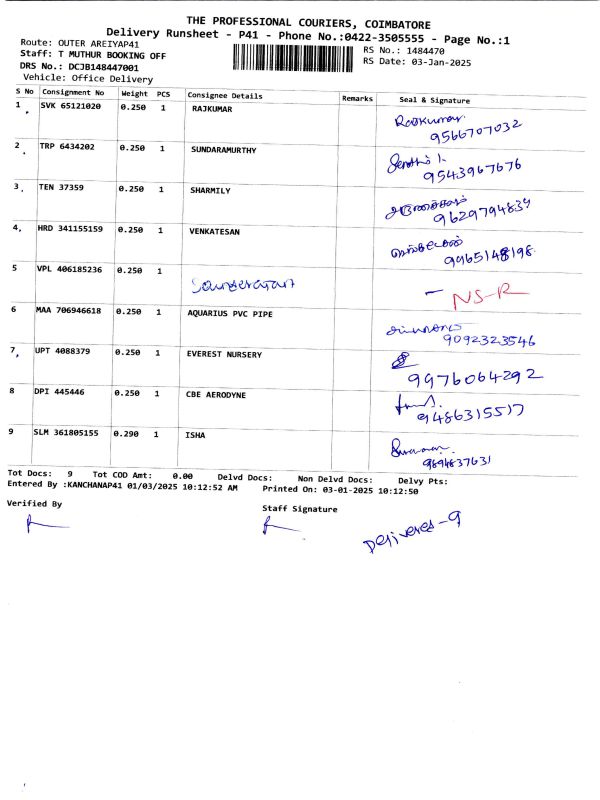 THE PROFESSIONAL COURIERS, COIMBATORE
Delivery Runsheet - P41 - Phone No.:0422-3505555 - Page No.:1
Route: OUTER AREIYAP41
RS No.: 1484470
Staff: T MUTHUR BOOKING OFF
RS Date: 03-Jan-2025
DRS No.: DCJB148447001
Vehicle: Office Delivery
S No Consignment No Weight PCS Consignee Details Remarks Seal & Signature
1 SVK 65121020 0.250 1 RAJKUMAR Rajkumar
9566707032
2 TRP 6434202 0.250 1 SUNDARAMURTHY
9543967676
3 TEN 37359 0.250 1 SHARMILY
9629794834
4 HRD 341155159 0.250 1 VENKATESAN வெங்கடேசன்
9965148198
5 VPL 406185236 0.250 1 - NS-R
6 MAA 706946618 0.250 1 AQUARIUS PVC PIPE
9092323546
7 UPT 4088379 0.250 1 EVEREST NURSERY
9976064292
8 DPI 445446 0.250 1 CBE AERODYNE
9486315517
9 SLM 361805155 0.290 1 ISHA
9894837631
Tot Docs: 9 Tot COD Amt: 0.00 Delvd Docs: Non Delvd Docs: Delvy Pts:
Entered By :KANCHANAP41 01/03/2025 10:12:52 AM Printed On: 03-01-2025 10:12:50
Verified By
Staff Signature
Deliveres-9